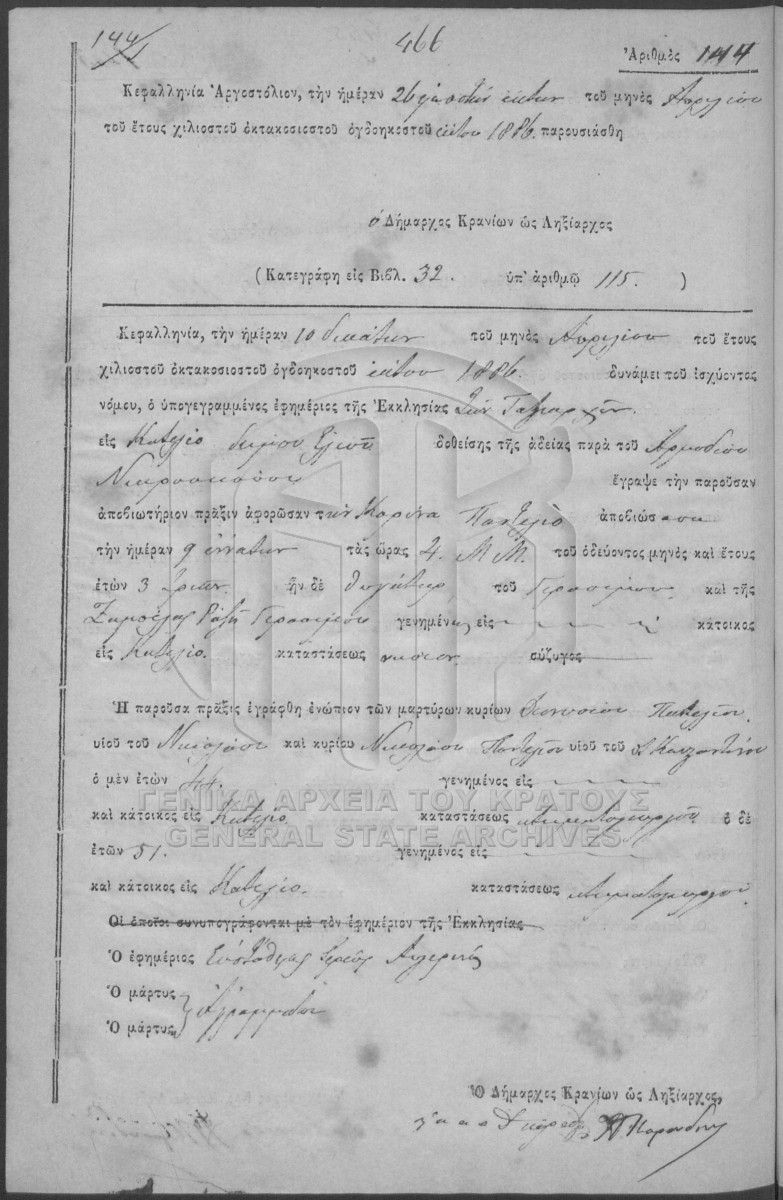 144/1 466 Ἀριθμὸς 144
Κεφαλληνία Ἀργοστόλιον, τὴν ἡμέραν 26 εἰκοστήν ἕκτην τοῦ μηνὸς Απριλίου
τοῦ ἔτους χιλιοστοῦ ὀκτακοσιοστοῦ ὀγδοηκοστοῦ ἕκτου 1886. παρουσιάσθη
ὁ Δήμαρχος Κρανίων ὡς Ληξίαρχος
(Κατεγράφη εἰς Βιβλ. 32. ὑπ' ἀριθμῷ 115.)
Κεφαλληνία, τὴν ἡμέραν 10 δεκάτην τοῦ μηνὸς Απριλίου τοῦ ἔτους
χιλιοστοῦ ὀκτακοσιοστοῦ ὀγδοηκοστοῦ ἕκτου 1886. δυνάμει τοῦ ἰσχύοντος
νόμου, ὁ ὑπογεγραμμένος ἐφημέριος τῆς Ἐκκλησίας τῶν Ταξιαρχῶν.
εἰς Κατελιό δήμου Ελιού δοθείσης τῆς ἀδείας παρὰ τοῦ Αρμοδίου
Νεκροσκόπου ἔγραψε τὴν παροῦσαν
ἀποβιωτήριον πρᾶξιν ἀφορῶσαν την Μαρίνα Παντελιό ἀποβιώσασα
τὴν ἡμέραν 9 ἐννάτην τὰς ὥρας 4. Μ.Μ. τοῦ ὁδεύοντος μηνὸς καὶ ἔτους
ἐτῶν 3 τριῶν. ἦν δὲ θυγάτηρ τοῦ Γερασίμου καὶ τῆς
Γερασίμου γενημένη εἰς κάτοικος
εἰς Κατελιό. καταστάσεως σύζυγος
Ἡ παροῦσα πρᾶξις ἐγράφθη ἐνώπιον τῶν μαρτύρων κυρίων Διονυσίου Παντελιού.
υἱοῦ τοῦ Νικολάου καὶ κυρίου Νικολάου Παντελιού υἱοῦ τοῦ Κωσταντίνου
ὁ μὲν ἐτῶν 44. γενημένος εἰς
καὶ κάτοικος εἰς Κατελιό καταστάσεως κτηματογεωργού ὁ δὲ
ΓΕΝΙΚΑ ΑΡΧΕΙΑ ΤΟΥ ΚΡΑΤΟΥΣ
GENERAL STATE ARCHIVES
ἐτῶν 51. γενημένος εἰς
καὶ κάτοικος εἰς Κατελιό. καταστάσεως κτηματογεωργού.
Οἱ ὁποῖοι συνυπογράφονται μὲ τὸν ἐφημέριον τῆς Ἐκκλησίας
Ὁ ἐφημέριος Ευστάθιος Ιερεύς
Ὁ μάρτυς } Αγράμματοι
Ὁ μάρτυς
Ὁ Δήμαρχος Κρανίων ὡς Ληξίαρχος,